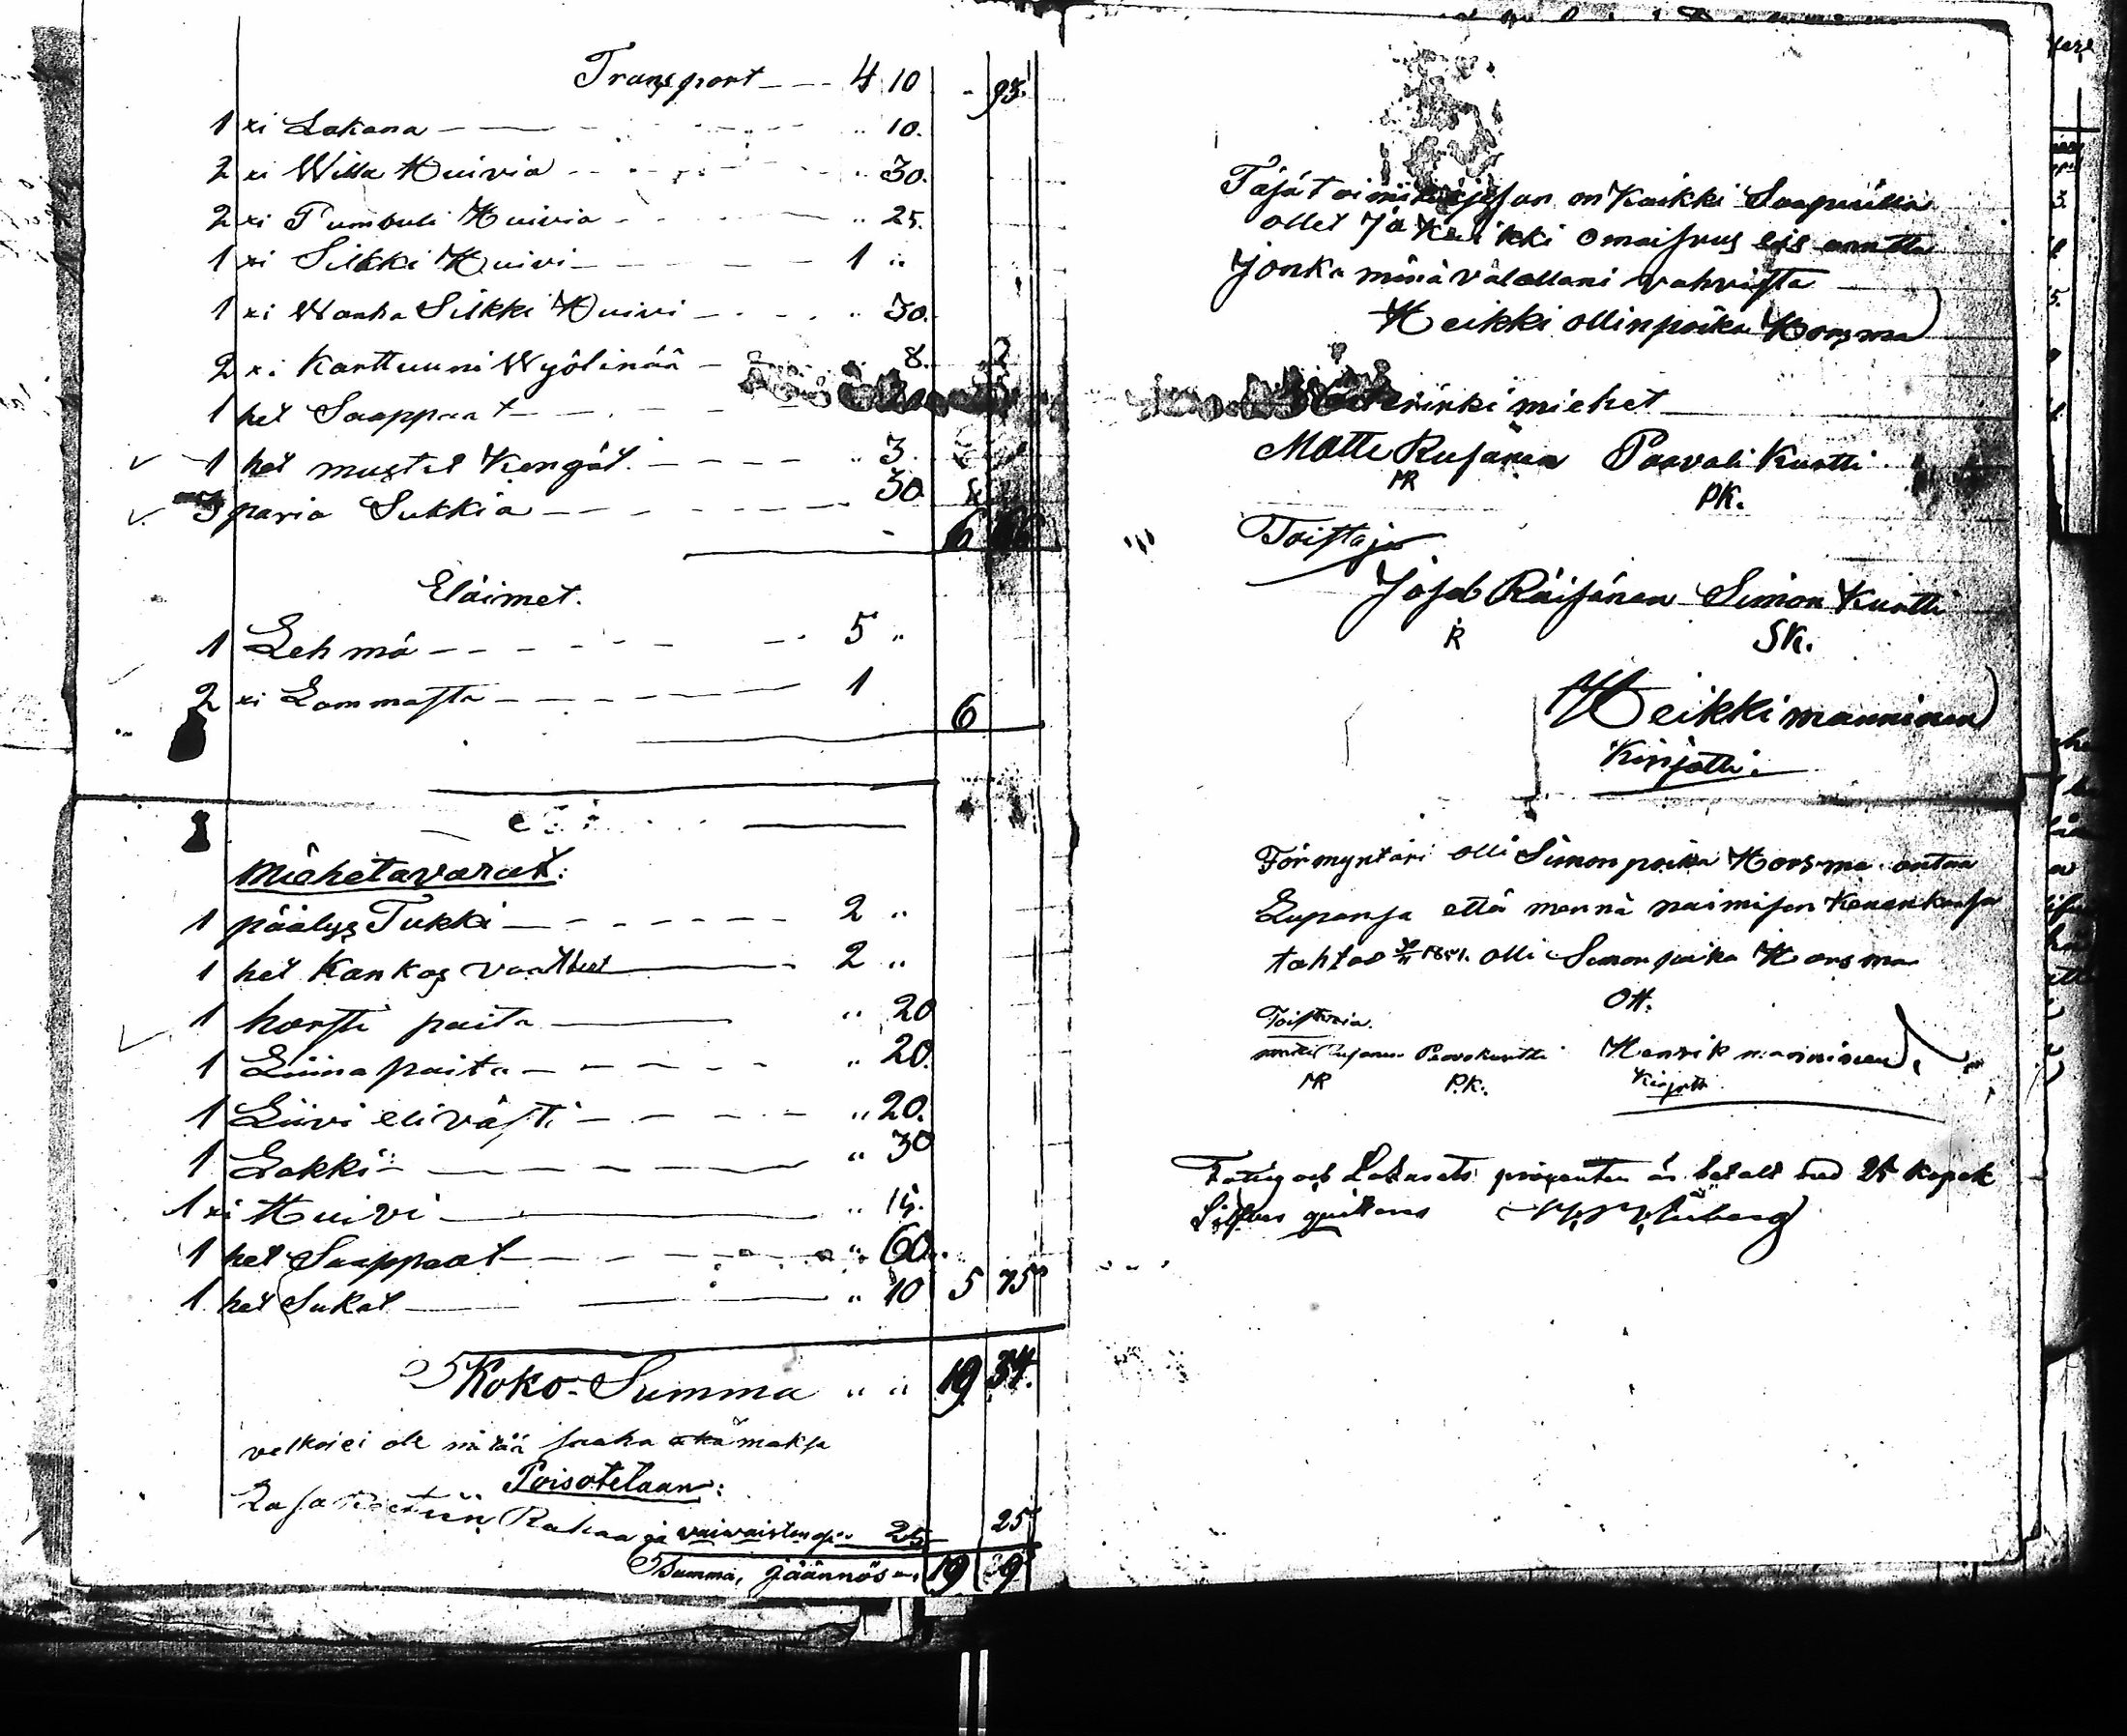 Transport 4 10 - 93.
1 xi Lakana " 10.
2 xi Willa Huivia " 30.
2 xi Tumbuli Huivia " 25.
1 xi Silkki Huivi 1 "
1 xi Wanha Silkki Huivi " 30.
2 xi Karttuuni Wyölinää 8.
1 het Saappaat
1 het mustet Kengät " 3.
3 paria Sukkia 30
6
Eläimet.
1 Lehmä 5 "
2 xi Lammasta 1
6
Miehetavarat:
1 päälys Tukki 2 "
1 het Kankas vaatteet 2 "
1 horsti paita " 20
1 Liina paita " 20.
1 Liivi eli västi " 20.
1 Lakki " 30
1 xi Huivi " 15.
1 het Saappaat " 60
1 het Sukat " 10 5 75
Koko-Summa " " 19 34.
velkoi ei ole mitää saaha eikä maksa
Poisotetaan:
Rahaa ja vaivaisten 25 25
Summa, jäännös 19 9
Täsä toimituxesan on Kaikki Saapuilla
ollet Ja Kaikki omaisuus eis annettu
Jonka minä valallani vahvista
Heikki ollinpoika Horsma
Wäterinki miehet
Matti Rusanen Paavali Kurtti
MR PK.
Toistaja
Josab Räisänen Simon Kurtti
R SK.
Heikki manninen
Kirjotti.
Förmyntäri olli Simonpoika Horsma antaa
Lupansa että mennä naimisen Kenenkansa
tahtoo 1851. olli Simonpoika Horsma
OH.
Toistavia.
matti Rusanen Paavo Kurtti Henrik manninen
MR P.K. Kirjotti
Fattig och Lasarets procenten är betalt med 25 Kopek
Silfver quitteras